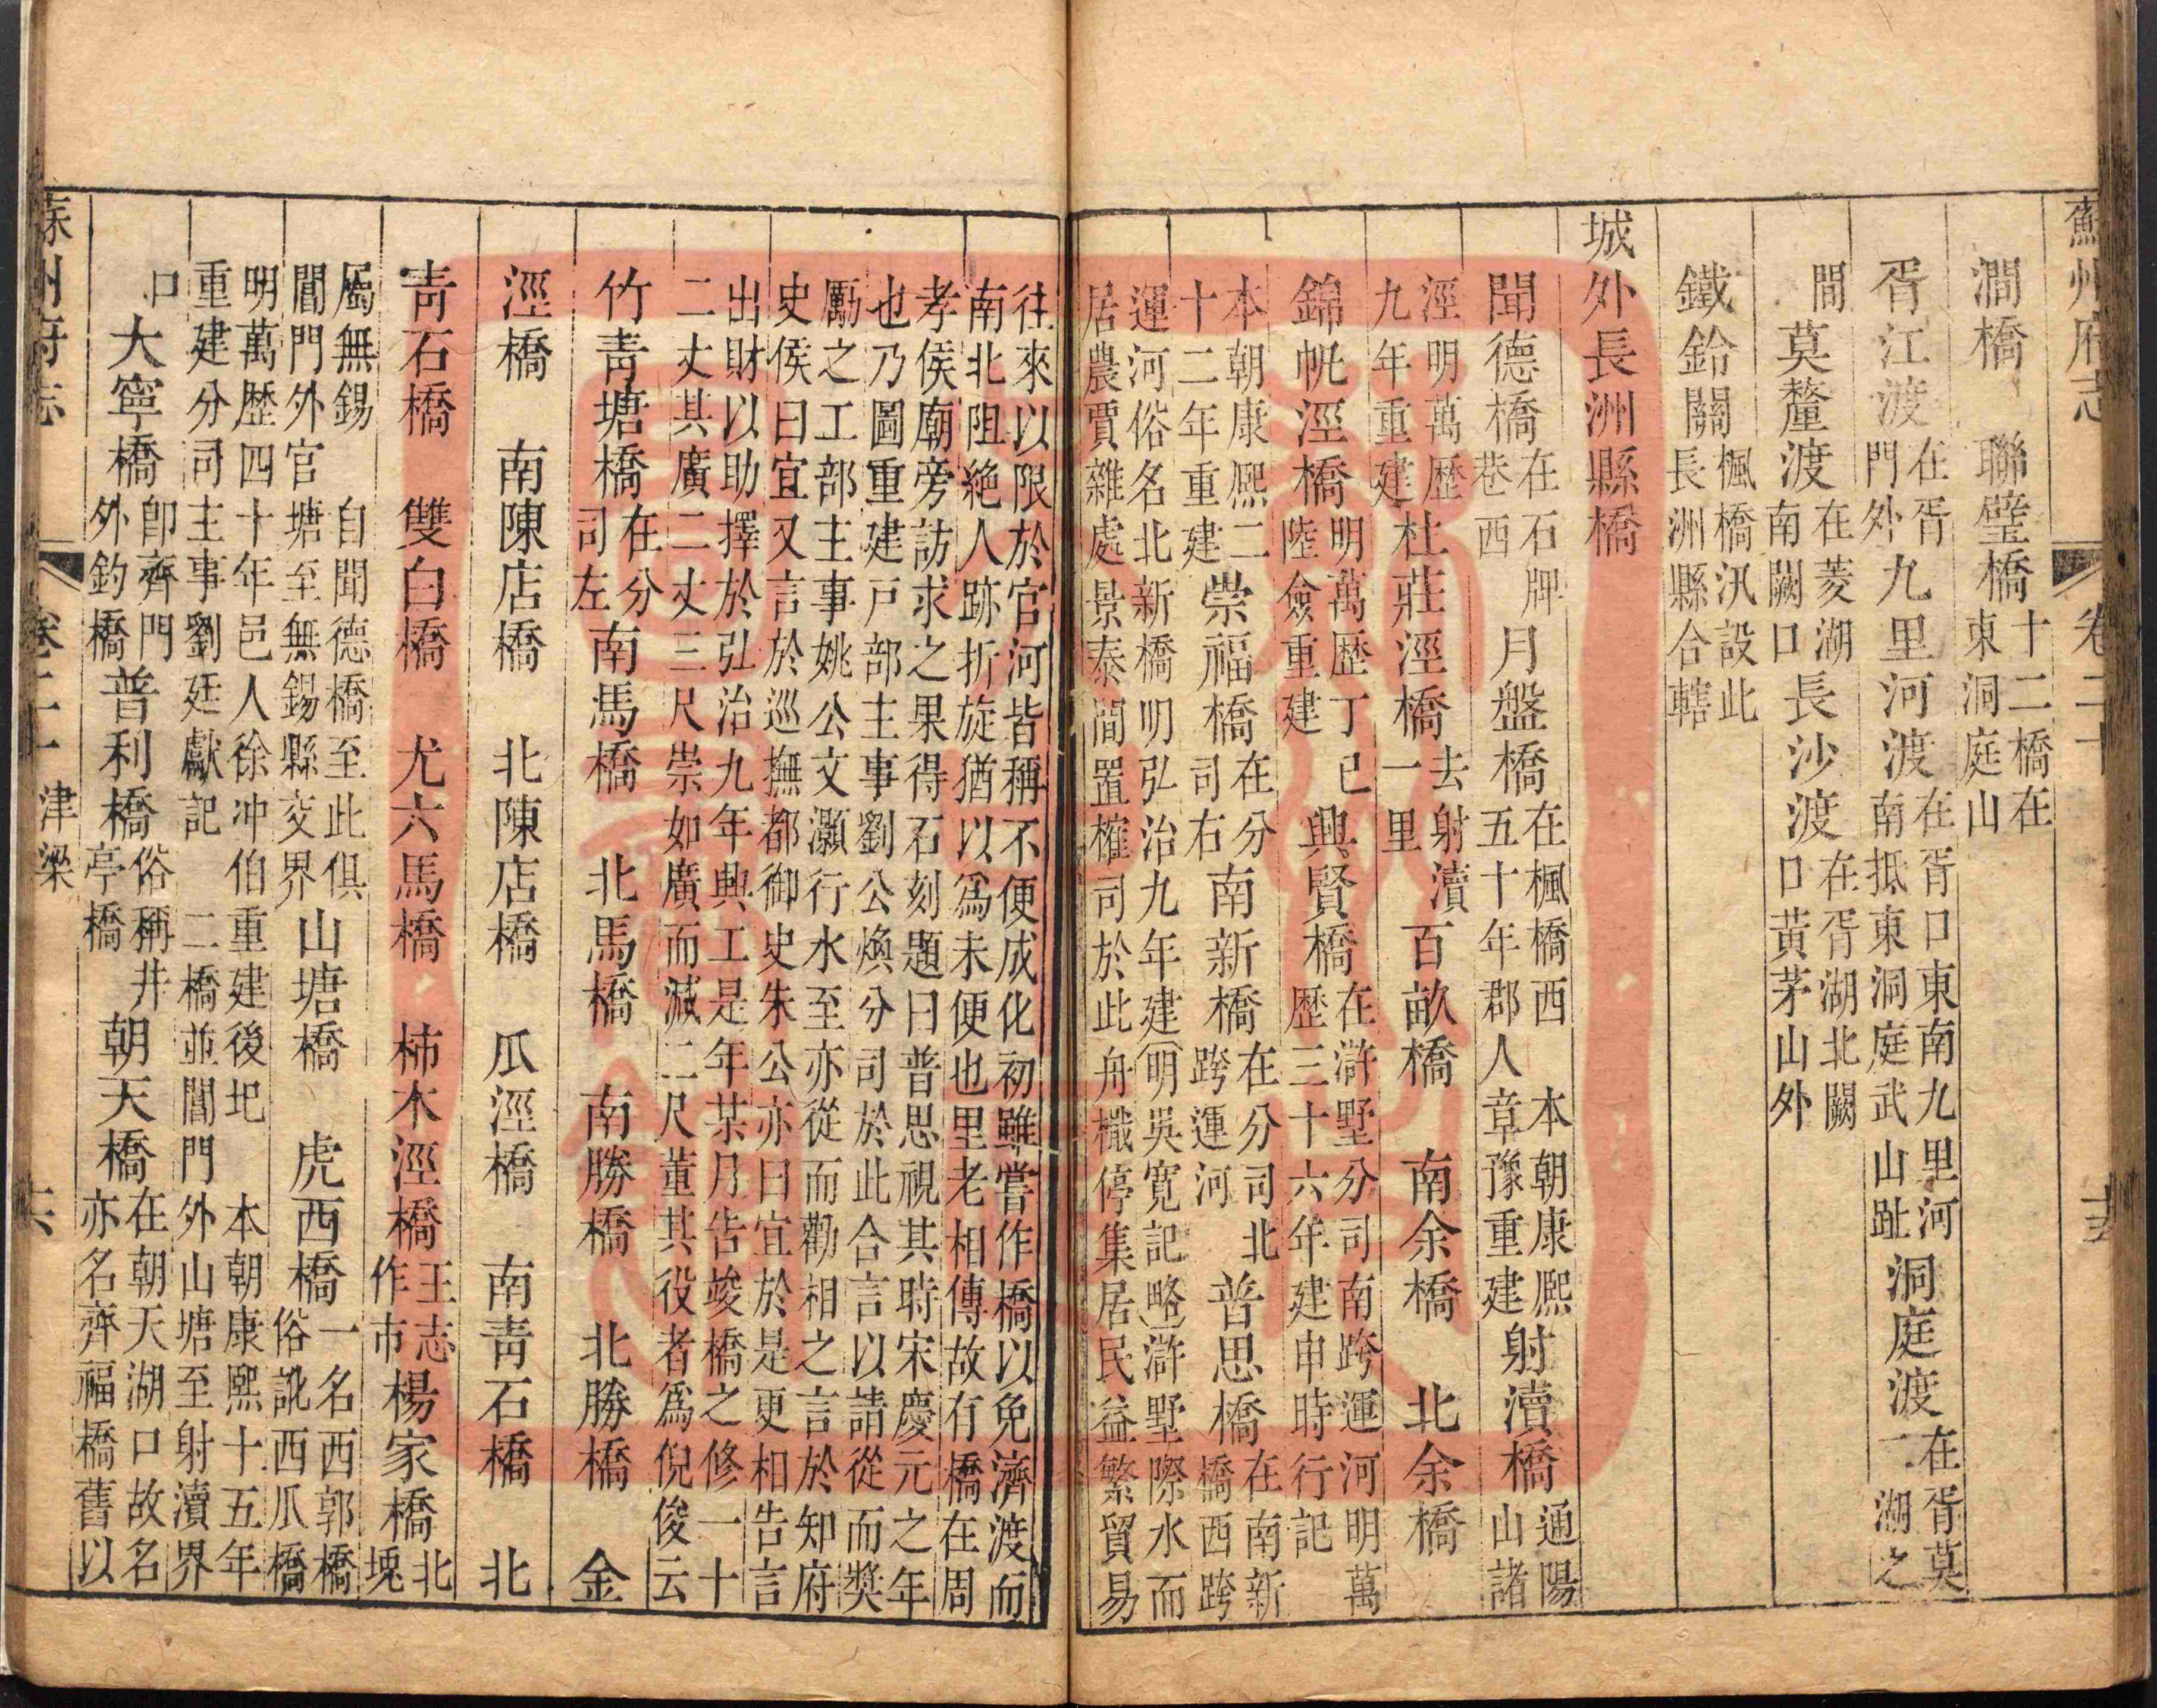 蘇州府志 卷二十
澗橋 聯璧橋十二橋在東洞庭山
胥江渡在胥門外九里河渡在胥口東南九里河南抵東洞庭武山趾洞庭渡在胥莫二湖之
間莫釐渡在菱湖南闕口長沙渡在胥湖北闕口黃茅山外
鐵鈴關楓橋汛設此長洲縣合轄
城外長洲縣橋
聞德橋在石牌巷西月盤橋在楓橋西本朝康熙五十年郡人章豫重建射瀆橋通陽山諸
涇明萬歷九年重建杜莊涇橋去射瀆一里百畝橋 南余橋 北余橋
錦帆涇橋明萬歷丁巳陸僉重建興賢橋在滸墅分司南跨運河明萬歷三十六年建申時行記
本朝康熙二十二年重建崇福橋在分司右南新橋在分司北跨運河普思橋在南新橋西跨
運河俗名北新橋明弘治九年建(明吳寬記略)滸墅際水而
居農賈雜處景泰間置榷司於此舟檝停集居民益繁貿易
往來以限於官河皆稱不便成化初雖嘗作橋以免濟渡而
南北阻絶人跡折旋猶以爲未便也里老相傳故有橋在周
孝侯廟旁訪求之果得石刻題曰普思視其時宋慶元之年
也乃圖重建戸部主事劉公煥分司於此合言以請從而奬
勵之工部主事姚公文灝行水至亦從而勸相之言於知府
史侯曰宜又言於巡撫都御史朱公亦曰宜於是更相告言
出財以助擇於弘治九年興工是年某月告竣橋之修一十
二丈其廣二丈三尺崇如廣而減二尺董其役者爲倪俊云
竹靑塘橋在分司左南馬橋 北馬橋 南勝橋 北勝橋 金
涇橋 南陳店橋 北陳店橋 瓜涇橋 南靑石橋 北
靑石橋 雙白橋 尤六馬橋 柿木涇橋王志作市楊家橋北堍
屬無錫自聞德橋至此俱閶門外官塘至無錫縣交界山塘橋 虎西橋一名西郭橋俗訛西爪橋
明萬歷四十年邑人徐冲伯重建後圯本朝康熙十五年
重建分司主事劉廷獻記二橋並閶門外山塘至射瀆界
口大寧橋卽齊門外釣橋普利橋俗稱井亭橋朝天橋在朝天湖口故名亦名齊福橋舊以
蘇州府志 津梁